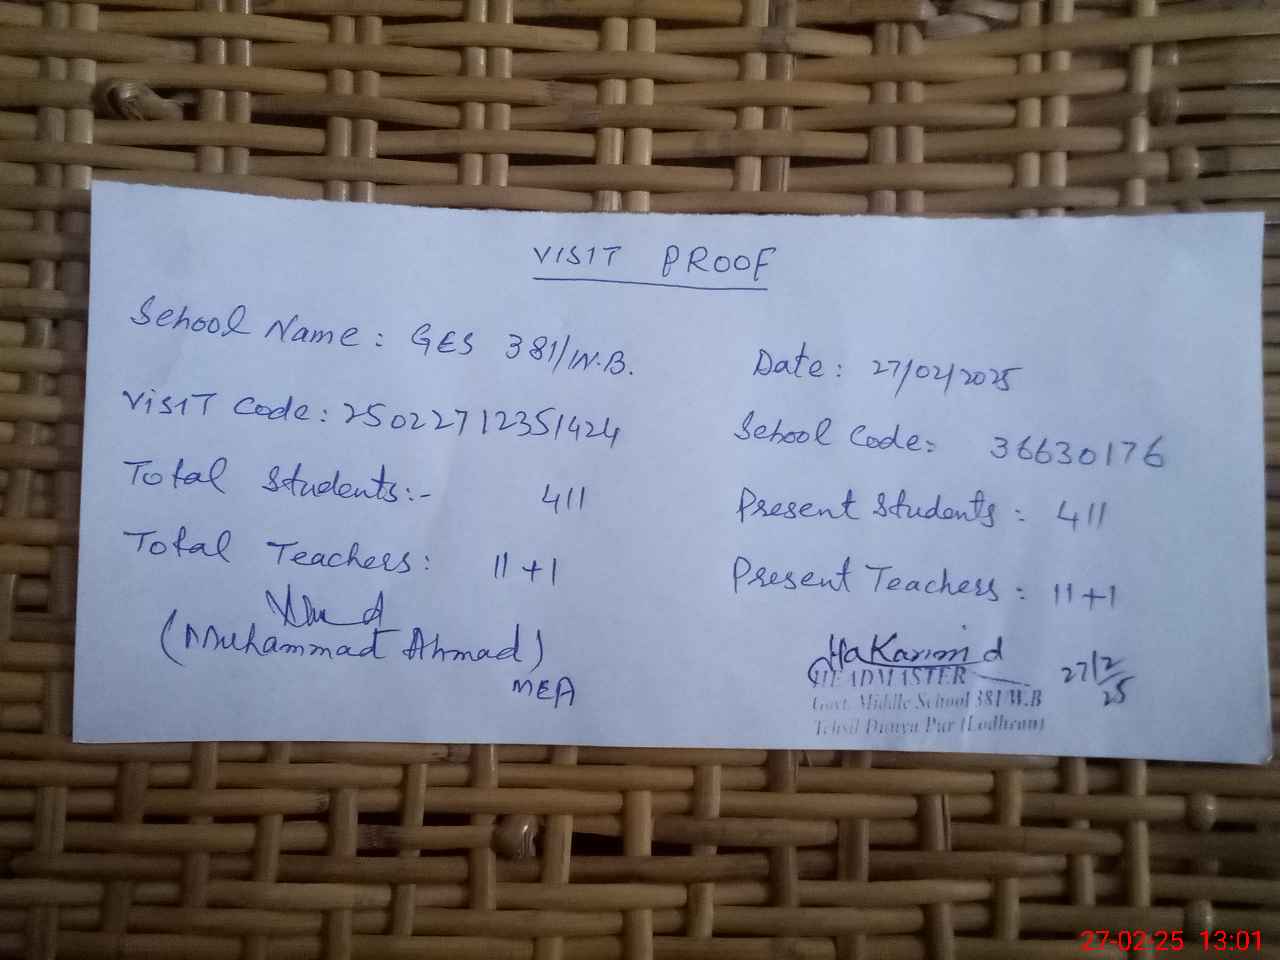 VISIT PROOF
School Name: GES 381/W.B.
Date: 27/02/2025
Visit Code: 25022712351424
School Code: 36630176
Total Students:- 411
Present Students: 411
Total Teachers: 11+1
Present Teachers: 11+1
(Muhammad Ahmad)
MEA
HEADMASTER
27/2/25
Govt. Middle School 381/W.B
Tehsil Dunya Pur (Lodhran)
27-02-25 13:01